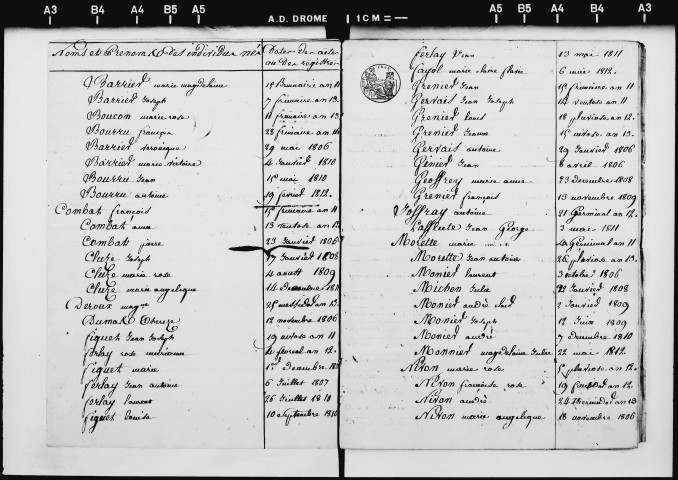 A3 B4 A4 B5 A5 A.D. DROME 1CM= A5 A4 B5 B4 A3
Noms et Prenoms des individus nés Dates des actes
ou des registres
Barrier marie magdelaine 19 Brumaire an 11
Barrier Joseph 7 frimaire an 13.
Boucon marie rose 11 frimaire an 13.
Bourru 28 frimaire an 14
Barrier veronique 29 mai 1806
Barrier marie victoire 4 Janvier 1810
Bourru Jean 15 mai 1810
Bourru antoine 19 fevrier 1812.
Combat françois 15 frimaire an 11
Combat anne 13 ventose an 12
Combat pierre 23 Janvier 1806
Cluze Joseph 17 Janvier 1808
Cluze marie rose 4 aoust 1809
Cluze marie angelique 14 Decembre
Deroux 25 messidor an 13.
Dumas Therese 12 novembre 1806
figuet Jean Joseph 19 nivose an 11
ferlay rose 4 floreal an 12.
figuet marie 1er Decembre
ferlay Jean antoine 6 Juillet 1807
ferlay laurent 26 Juillet 1810
figuet louise 10 septembre 1810
ferlay Jean 13 mai 1811
Gayol marie 6 mai 1812.
Grenier Jean 15 frimaire an 11
Gervais Jean Joseph 14 ventose an 11
Grenier louis 18 pluviose an 12.
Grenier Jeanne 15 nivose an 13.
Gervais antoine 29 Janvier 1806
Jean 8 avril 1806
Geoffrey marie anne 23 Decembre 1808
Grenier françois 13 novembre 1809
Joffray antoine 21 Germinal an 12.
Lafflute Jean George 3 mai 1811
Morette marie Germinal an 11
Morette Jean antoine 26 pluviose an 13.
Monier laurent 3 octobre 1806
Michon Julie 22 Janvier 1808
Monier andré 2 Janvier 1809
Monier Joseph 12 Juin 1809
Monier andré 7 Decembre 1810
Monnier magdelaine Julie 22 mai 1812.
Niron marie rose 5 pluviose an 12.
Niron françoise rose 19 an 12.
Niron andré 24 thermidor an 13
Niron marie angelique 18 novembre 1806